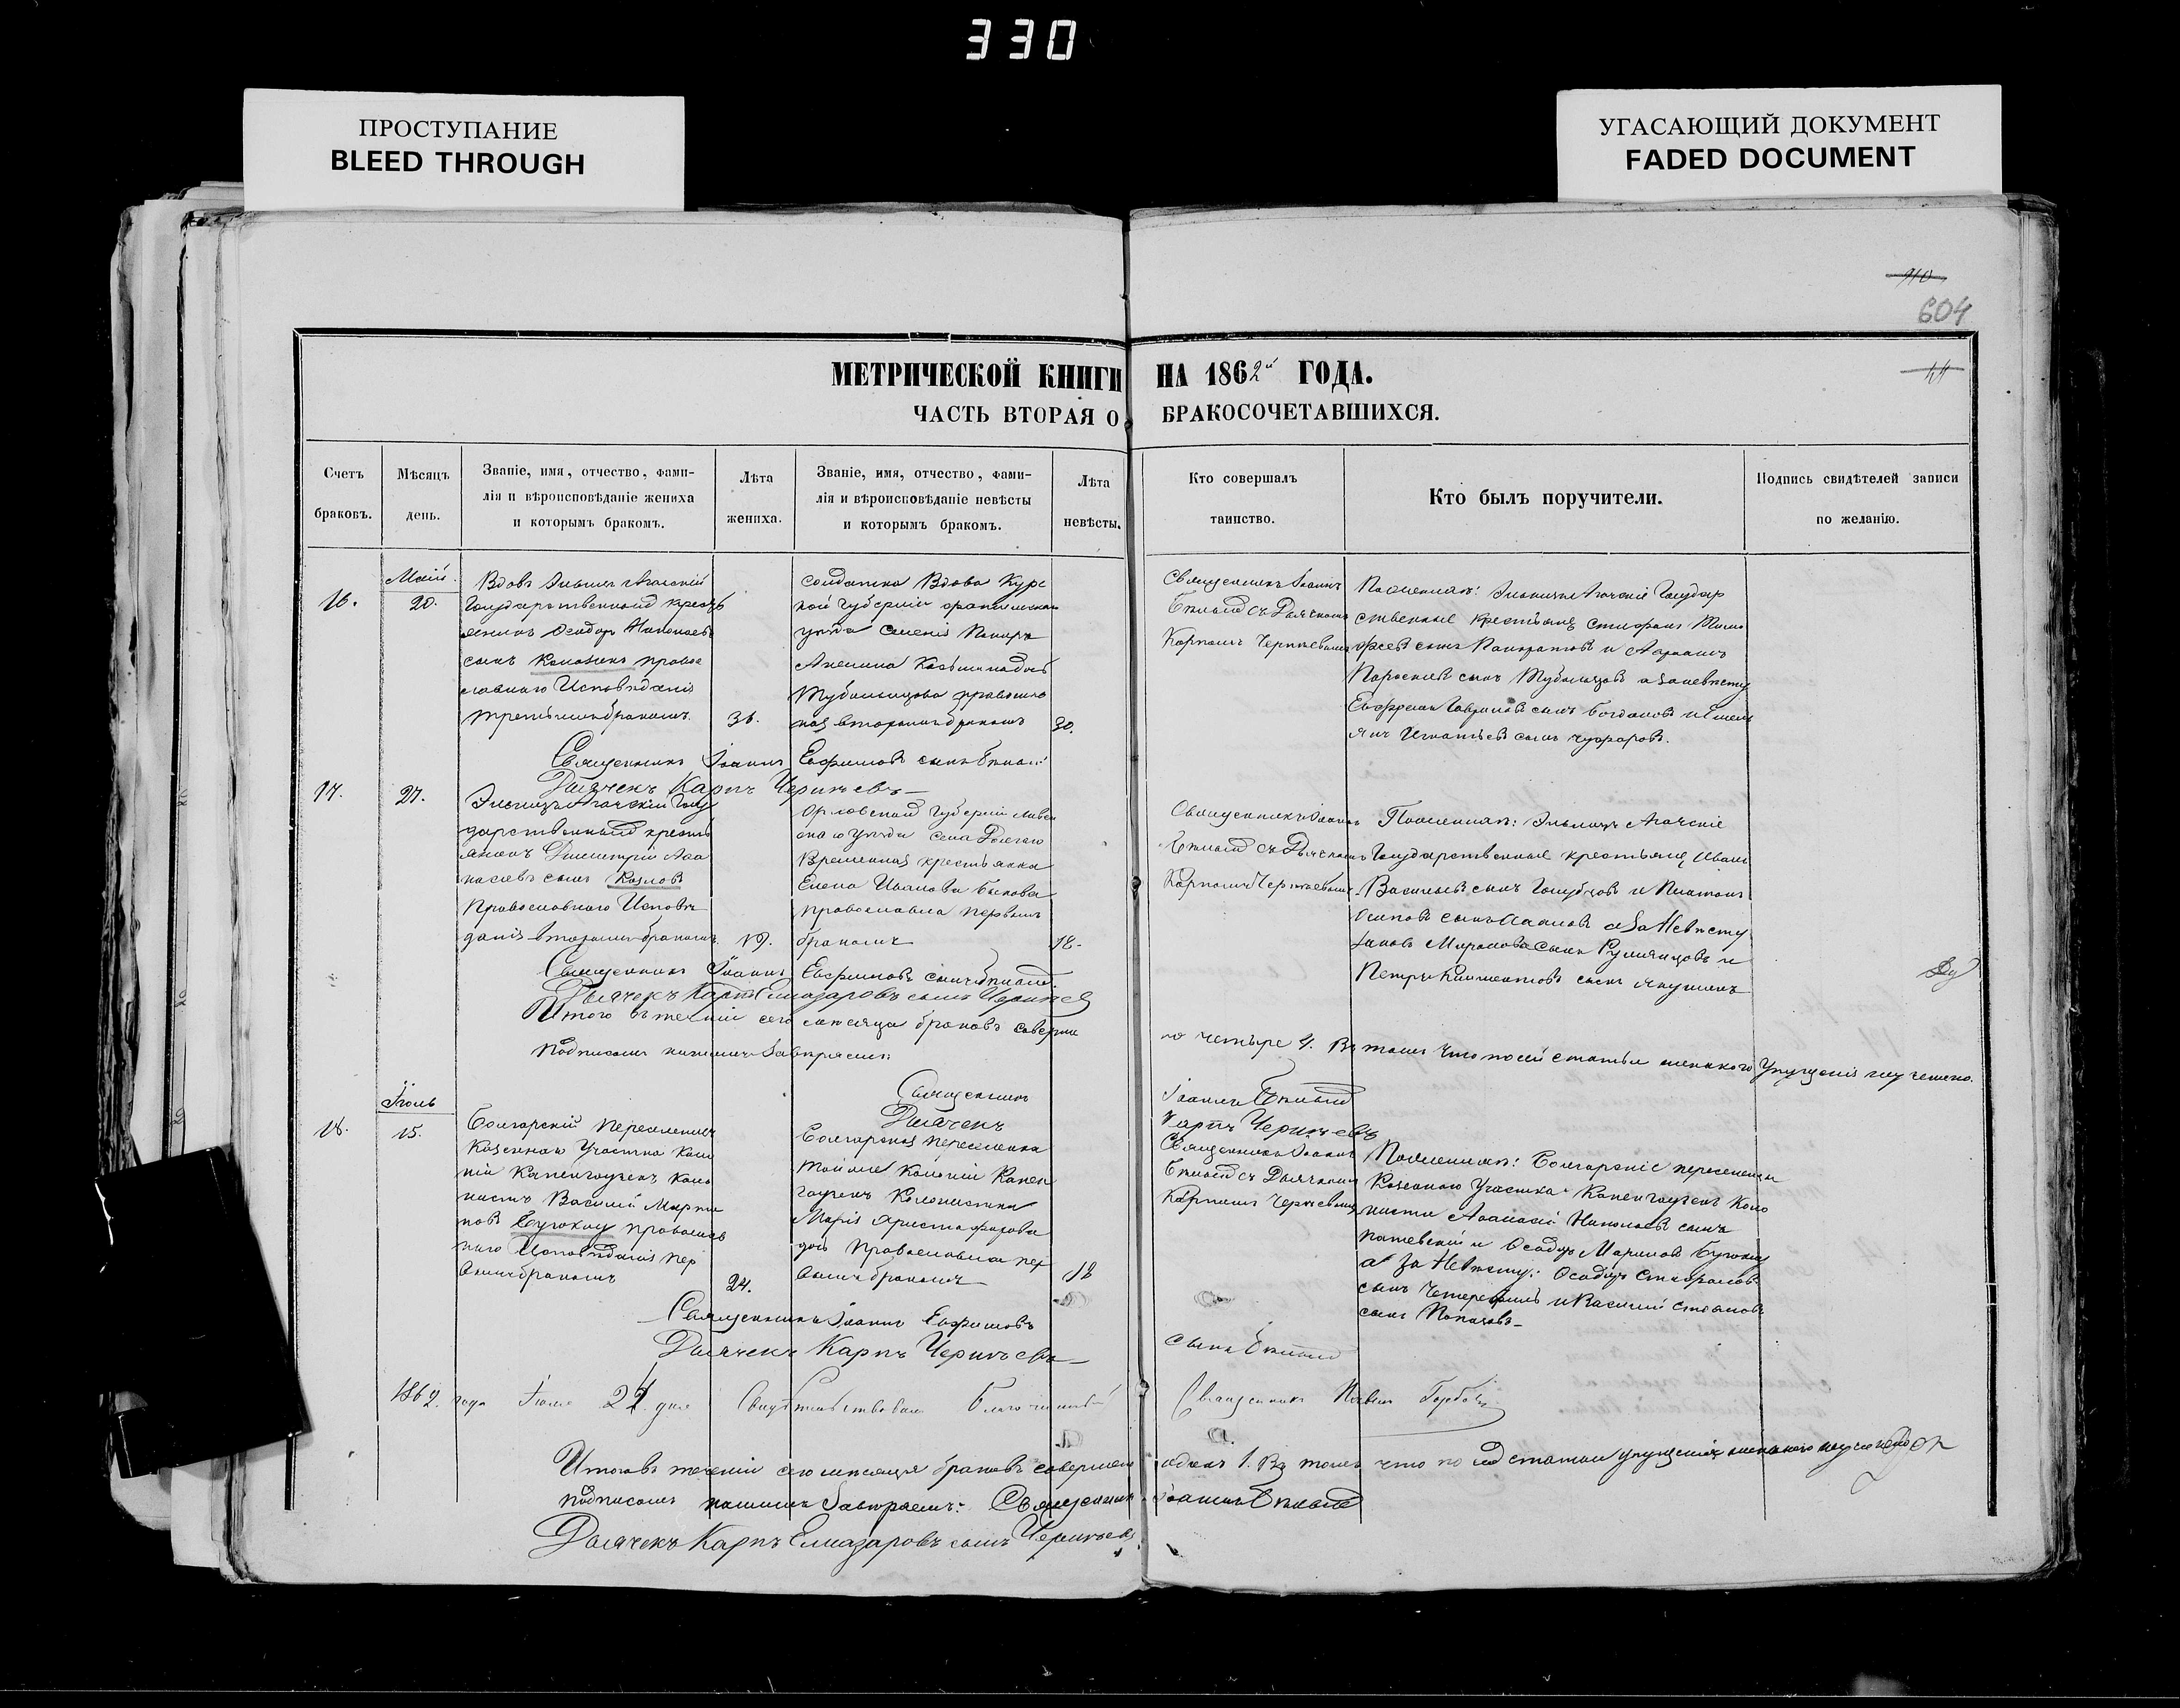 330
ПРОСТУПАНИЕ
BLEED THROUGH
УГАСАЮЩИЙ ДОКУМЕНТ
FADED DOCUMENT
910
604
МЕТРИЧЕСКОЙ КНИГИ НА 1862й ГОДА.
ЧАСТЬ ВТОРАЯ О БРАКОСОЧЕТАВШИХСЯ.
Счетъ браковъ.
Мѣсяцъ день.
Званіе, имя, отчество, фами-
лія и вѣроисповѣданіе жениха
и которымъ бракомъ.
Лѣта жениха.
Званіе, имя, отчество, фами-
лія и вѣроисповѣданіе невѣсты
и которымъ бракомъ.
Лѣта невѣсты.
Кто совершалъ
таинство.
Кто былъ поручители.
Подпись свидѣтелей записи
по желанію.
16.
Май
20.
Вдовъ
Государственный кресть
янинъ Ѳеодоръ Николаевъ
сынъ правос
лавнаго Исповѣданія
третьимъ бракомъ.
36.
солдатка Вдова Курс
кой Губерніи
уѣзда
Акелина Косьмина дочь
православ
ная вторымъ бракомъ
30.
Священникъ Іоаннъ
Бѣлый съ Дьячкомъ
Карпомъ Черняевымъ
По женихѣ: Государ
ственные крестьяне Стефанъ Тимо
фѣевъ сынъ Панкратовъ и
сынъ а за невѣсту
Гавриловъ сынъ Богдановъ и Емель
янъ Игнатьевъ сынъ
Священникъ Іоаннъ Евфимовъ сынъ Бѣлый
Дьячекъ Карпъ Черняевъ
17.
27.
Госу
дарственный кресть
янинъ Димитрій Аѳа
насіевъ сынъ Козловъ
Православнаго Исповѣ
данія вторымъ бракомъ.
19.
Орловской Губерніи Ливен
скаго уѣзда села Долгаго
Временная крестьянка
Елена Иванова Быкова
православна первымъ
бракомъ
18.
Священникъ Іоаннъ
Бѣлый съ Дьячкомъ
Карпомъ Черняевымъ
По женихѣ:
Государственные крестьяне, Иванъ
Васильевъ сынъ Голубцовъ и Платонъ
Осиповъ сынъ а за Невѣсту
Іаковъ Мироновъ сынъ Румянцовъ и
Петръ Климентовъ сынъ Якушинъ
Священникъ Іоаннъ Евфимовъ сынъ Бѣлый.
Дьячекъ Карпъ Елиазаровъ сынъ Черняев
Итого въ теченіи сего мѣсяца браковъ соверше
но четыре 4. Въ томъ что по сей статьи никакого Упущенія неучинено.
Подписомъ нашимъ Завѣряемъ:
Священникъ Іоаннъ Бѣлый
Дьячекъ Карпъ Черняевъ
Іюль
18.
15.
Болгарскій Переселенецъ
Казеннаго Участка Коло
ніи Капенгоузенъ Коло
нистъ Василій Мари
новъ православ
наго Исповѣданія пер
вымъ бракомъ
24.
Болгарская переселенка
той же Колоніи Капен
гоузенъ Колонистка
Марія Христофорова
дочь Православна пер
вымъ бракомъ
18
Священникъ Іоаннъ
Бѣлый съ Дьячкомъ
Карпомъ Черняевымъ
По женихѣ: Болгарскіе переселенцы
Казеннаго Участка Капенгоузенъ Коло
нисты Аѳанасій Николаевъ сынъ
и Ѳеодоръ Мариновъ
а за Невѣсту: Ѳеодоръ Стефановъ
сынъ и Василій Стояновъ
сынъ
Священникъ Іоаннъ Евфимовъ сынъ Бѣлый
Дьячекъ Карпъ Черняевъ
1862 года Іюля дня Свидѣтельствовалъ Благочинный Священникъ Павелъ
Итого въ теченіи сего мѣсяца браковъ совершенъ одинъ 1. Въ томъ что по сей статьи упущенія никакого неучинено
Подписомъ нашимъ Завѣряемъ: Священникъ Іоаннъ Бѣлый
Дьячекъ Карпъ Елиазаровъ сынъ Черняевъ